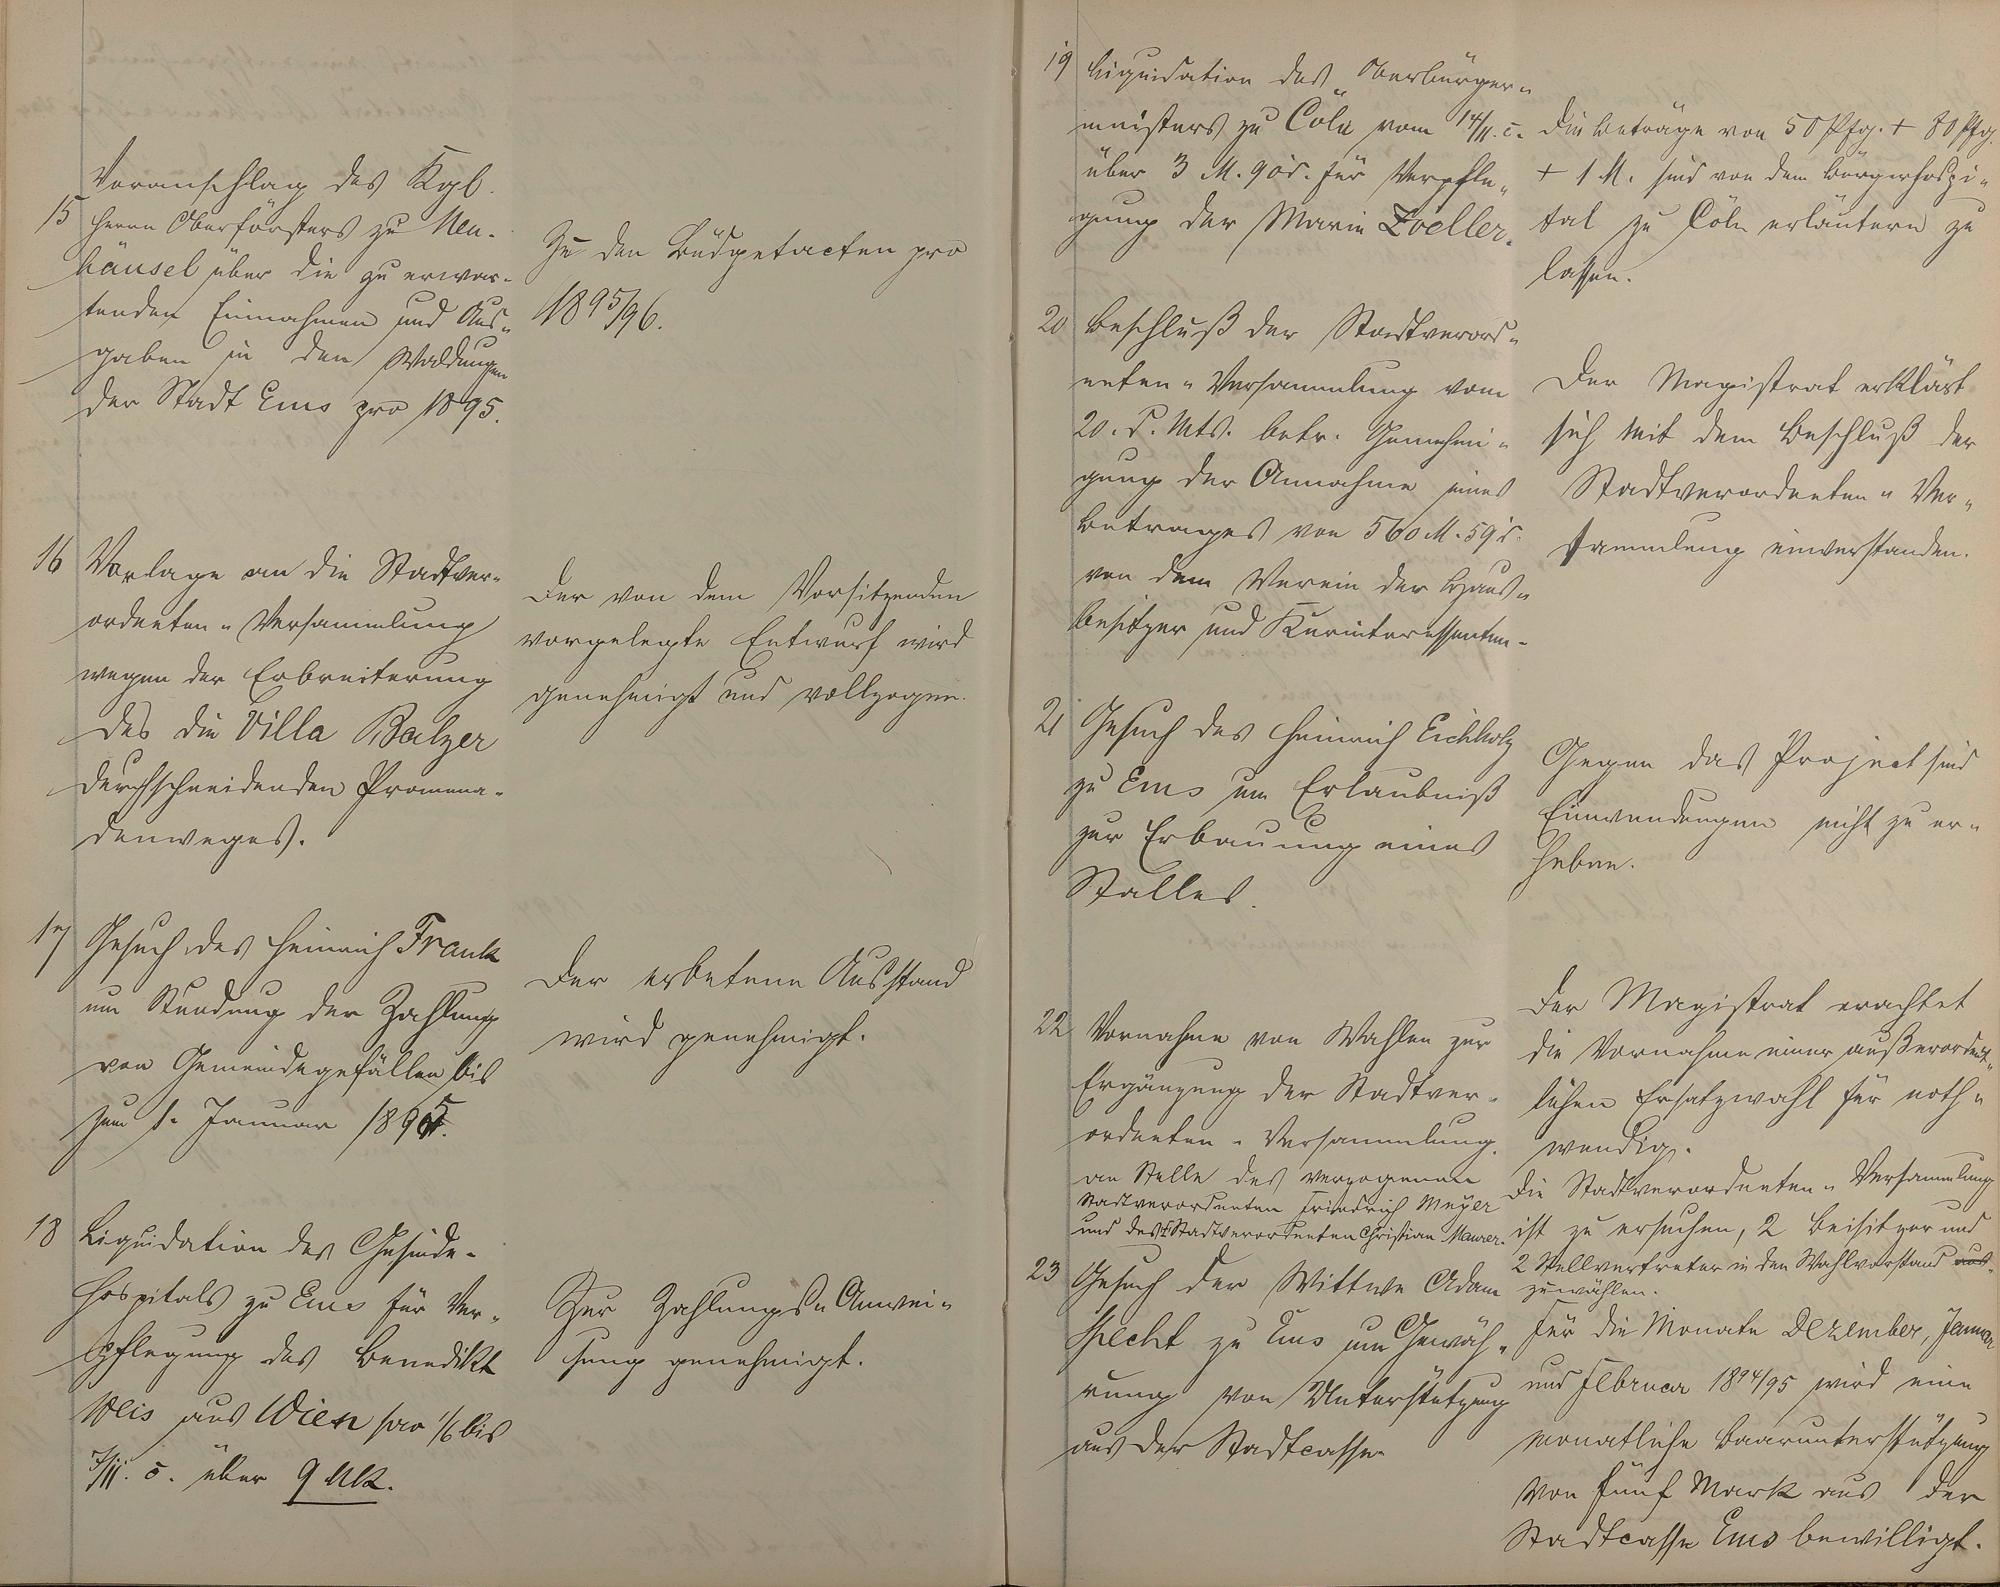 Voranschlag des Kgl.
15 Herrn Oberförsters zu Neu-
häusel über die zu erwar-
tenden Einnahmen und Aus-
gaben in den Waldungen
der Stadt Ems pro 1895.
Zu den Büdgetacten pro
1895/96.
16 Vorlage an die Stadtver-
ordneten-Versammlung
wegen der Erbreiterung
des die Villa Balzer
durchschneidenden Promena-
denweges.
Der von dem Vorsitzenden
vorgelegte Entwurf wird
genehmigt und vollzogen.
17 Gesuch des Heinrich Frank
um Stundung der Zahlung
von Gemeindegefällen bis
zum 1. Januar 1895.
Der erbetene Ausstand
wird genehmigt.
18 Liquidation des Gesinde-
hospitals zu Ems für Ver-
pflegung des Benedikt
Weis aus Wien pro 1/6 bis
7/11. c. über 9 Mk.
Zur Zahlungs-Anwei-
sung genehmigt.
19 Liquidation des Oberbürger-
meisters zu Cöln vom 14/11. c.
über 3 M. 90 d. für Verpfle-
gung der Marie Zoeller.
Die Beträge von 50 Pfg. + 80 Pfg.
+ 1 M. sind von dem Bürgerhospi-
tal zu Cöln erläutern zu
lassen.
20 Beschluß der Stadtverord-
neten-Versammlung vom
20. d. Mts. betr. Genehmi-
gung der Annahme eines
Betrages von 560 M. 59 d.
von dem Verein der Haus-
besitzer und Kurinteressenten.
Der Magistrat erklärt
sich mit dem Beschluß der
Stadtverordneten-Ver-
sammlung einverstanden.
21 Gesuch des Heinrich Eichholz
zu Ems um Erlaubniß
zur Erbauung eines
Stalles.
Gegen das Project sind
Einwendungen nicht zu er-
heben.
22 Vornahme von Wahlen zur
Ergänzung der Stadtver-
ordneten-Versammlung.
an Stelle des verzogenen
Stadtverordneten Friedrich Meyer
und des Stadtverordneten Christian Maurer.
Der Magistrat erachtet
die Vornahme einer außerordent-
lichen Ersatzwahl für noth-
wendig.
Die Stadtverordneten-Versammlung
ist zu ersuchen, 2 Beisitzer und
2 Stellvertreter in den Wahlvorstand aus-
zuwählen.
23 Gesuch der Wittwe Adam
Specht zu Ems um Gewäh-
rung von Unterstützung
aus der Stadtcasse.
Für die Monate Dezember, Januar
und Februar 1894/95 wird eine
monatliche Baarunterstützung
von fünf Mark aus der
Stadtcasse Ems bewilligt.